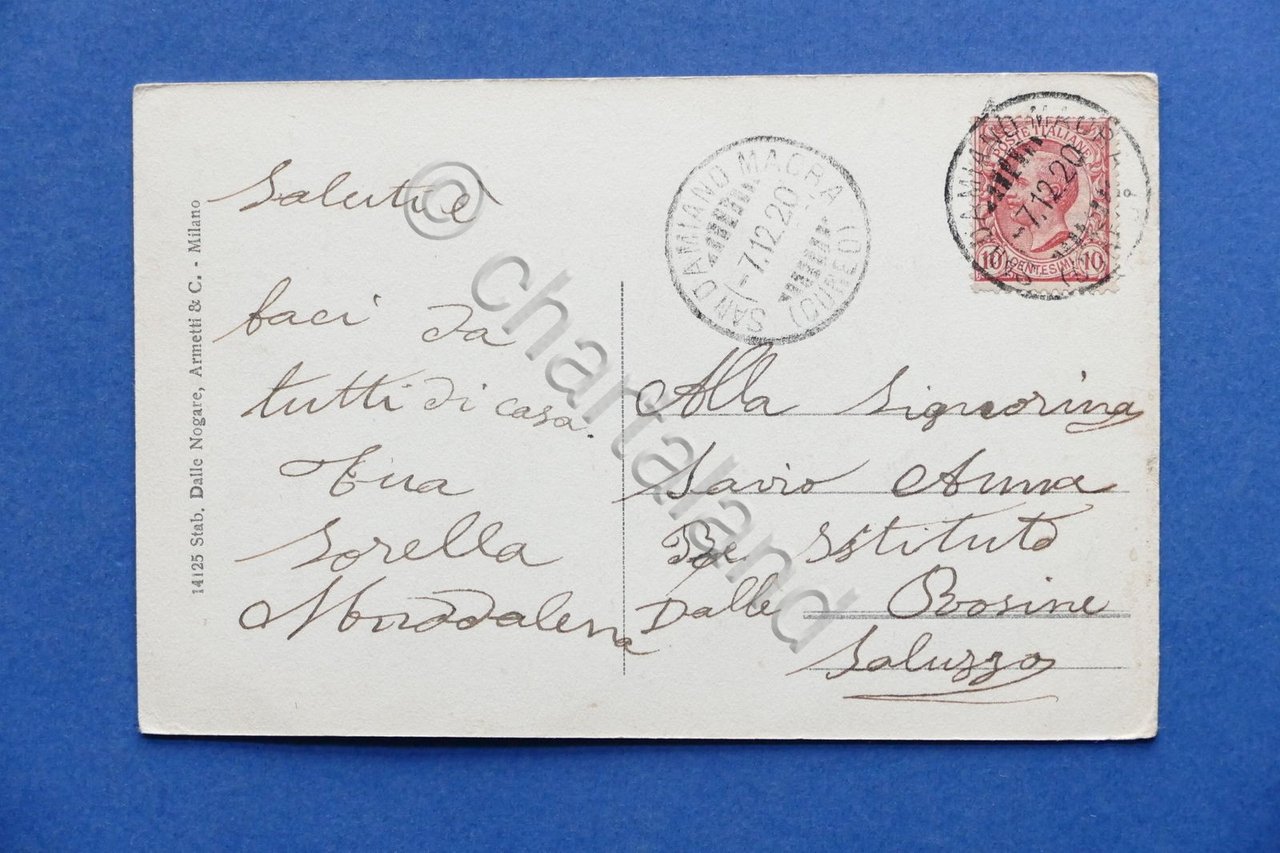 14125 Stab. Dalle Nogare, Armetti & C. - Milano
Saluti e
baci da
tutti di casa.
tua
sorella
Maddalena
SAN DAMIANO MACRA (CUNEO)
-7.12.20
SAN DAMIANO MACRA
-7.12.20
POSTE ITALIANE
10 CENTESIMI 10
Alla Signorina
Savio Anna
Istituto
Dalle Rosine
Saluzzo
© chartaland